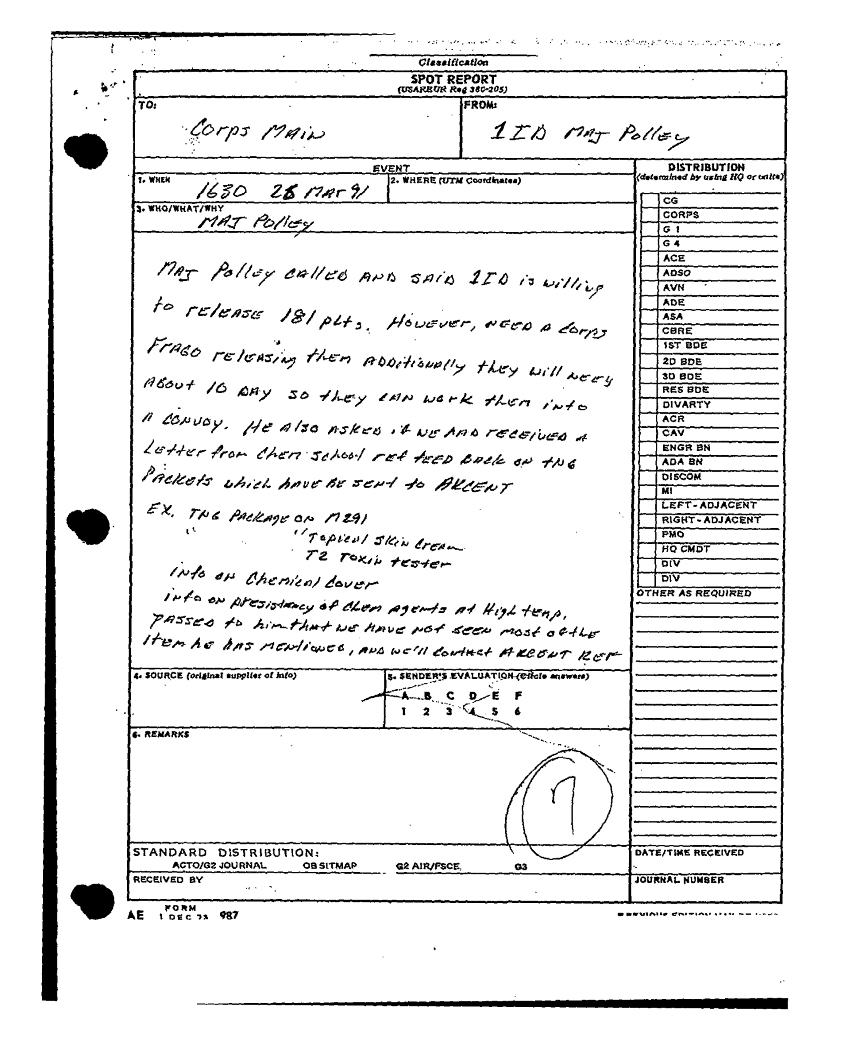 Classification
SPOT REPORT
(USAREUR Reg 380-205)
TO:
Corps MAIN
FROM:
1ID MAJ Polley
EVENT
1. WHEN
1630 28 MAR 91
2. WHERE (UTM Coordinates)
3. WHO/WHAT/WHY
MAJ Polley
MAJ Polley CALLED AND SAID 1ID is willing
to release 181 plts. However, NEED A Corps
FRAGO releasing them ADDitionally they will NEED
About 10 DAY so they CAN work them into
A CONVOY. He Also ASKED if we HAD received A
Letter from Chem School ref feed BACK on TNG
PACKets which have BE sent to ARCENT
EX. TNG PACKAGE ON M291
" " Topical Skin Cream
T2 Toxin tester
info on Chemical Cover
info on presistancy of Chem Agents At High temp.
PASSED to him that we HAVE Not seen most of the
Item he has mentioned, AND we'll Contact ARCENT REF
4. SOURCE (original supplier of info)
5. SENDER'S EVALUATION (Circle answers)
A B C D E F
1 2 3 4 5 6
6. REMARKS
7
STANDARD DISTRIBUTION:
ACTO/G2 JOURNAL OB SITMAP G2 AIR/FSCE. G3
RECEIVED BY
DISTRIBUTION
(determined by using HQ or units)
CG
CORPS
G 1
G 4
ACE
ADSO
AVN
ADE
ASA
CBRE
1ST BDE
2D BDE
3D BDE
RES BDE
DIVARTY
ACR
CAV
ENGR BN
ADA BN
DISCOM
MI
LEFT-ADJACENT
RIGHT-ADJACENT
PMO
HQ CMDT
DIV
DIV
OTHER AS REQUIRED
DATE/TIME RECEIVED
JOURNAL NUMBER
AE FORM 1 DEC 73 987
PREVIOUS EDITION